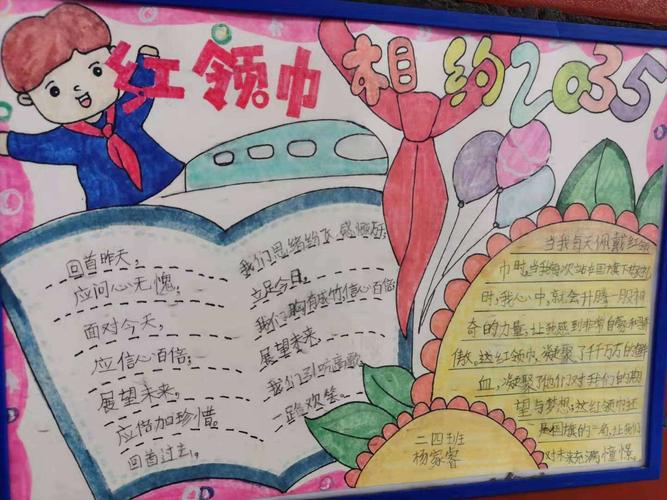 红领巾 相约2035
回首昨天,
应问心无愧,
面对今天,
应信心百倍,
展望未来,
应倍加珍惜。
回首过去,
我们思绪纷飞,感慨万
立足今日,
我们胸有成竹,信心百倍
展望未来,
我们引吭高歌,
一路欢笑。
当我每天佩戴红领
巾时,当我每次站在国旗下敬礼
时,我心中,就会升腾一股神
奇的力量,让我感到非常自豪和骄
傲,这红领巾,凝聚了千千万万的鲜
血,凝聚了他们对我们的期
望与梦想;这红领巾还
是国旗的一角,让我们
对未来充满憧憬.
二四班
杨家睿